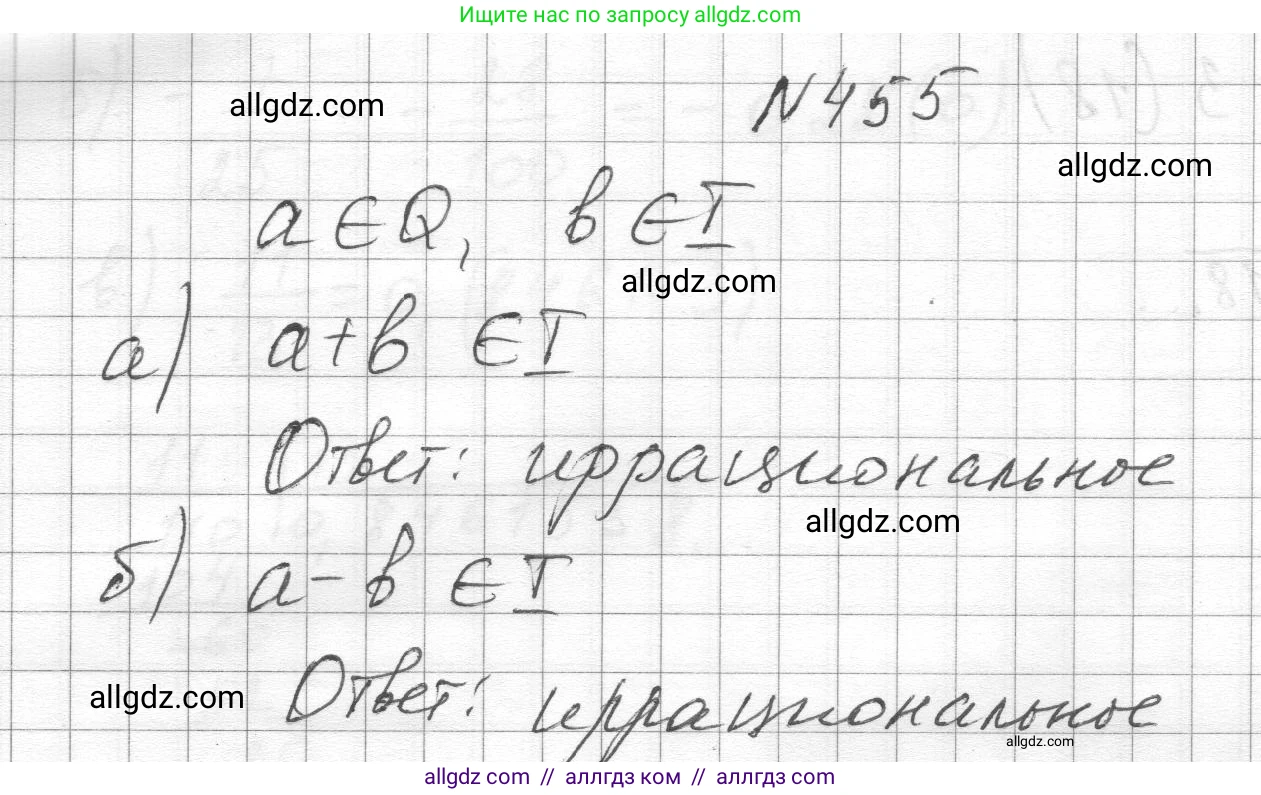 Ищите нас по запросу allgdz.com
N 455
allgdz.com
allgdz.com
a ∈ Q, b ∈ I
allgdz.com
а) a+b ∈ I
Ответ: иррациональное
allgdz.com
б) a-b ∈ I
Ответ: иррациональное
allgdz.com
allgdz.com
allgdz com // аллгдз ком // аллгдз com